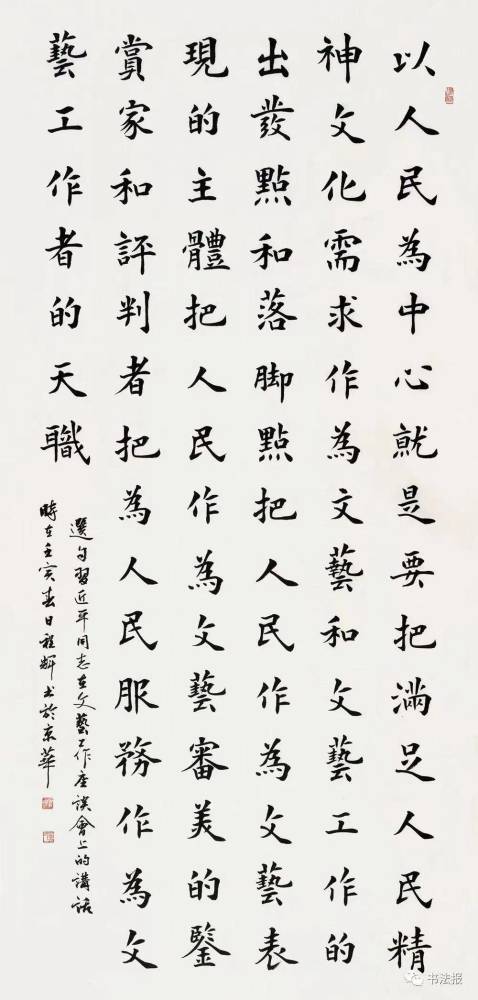 以人民為中心就是要把滿足人民精
神文化需求作為文藝和文藝工作的
出發點和落脚點把人民作為文藝表
現的主體把人民作為文藝審美的鑒
賞家和評判者把為人民服務作為文
藝工作者的天職
選句習近平同志在文藝工作座談會上的講話
時在壬寅春日程輝书於京華
书法报